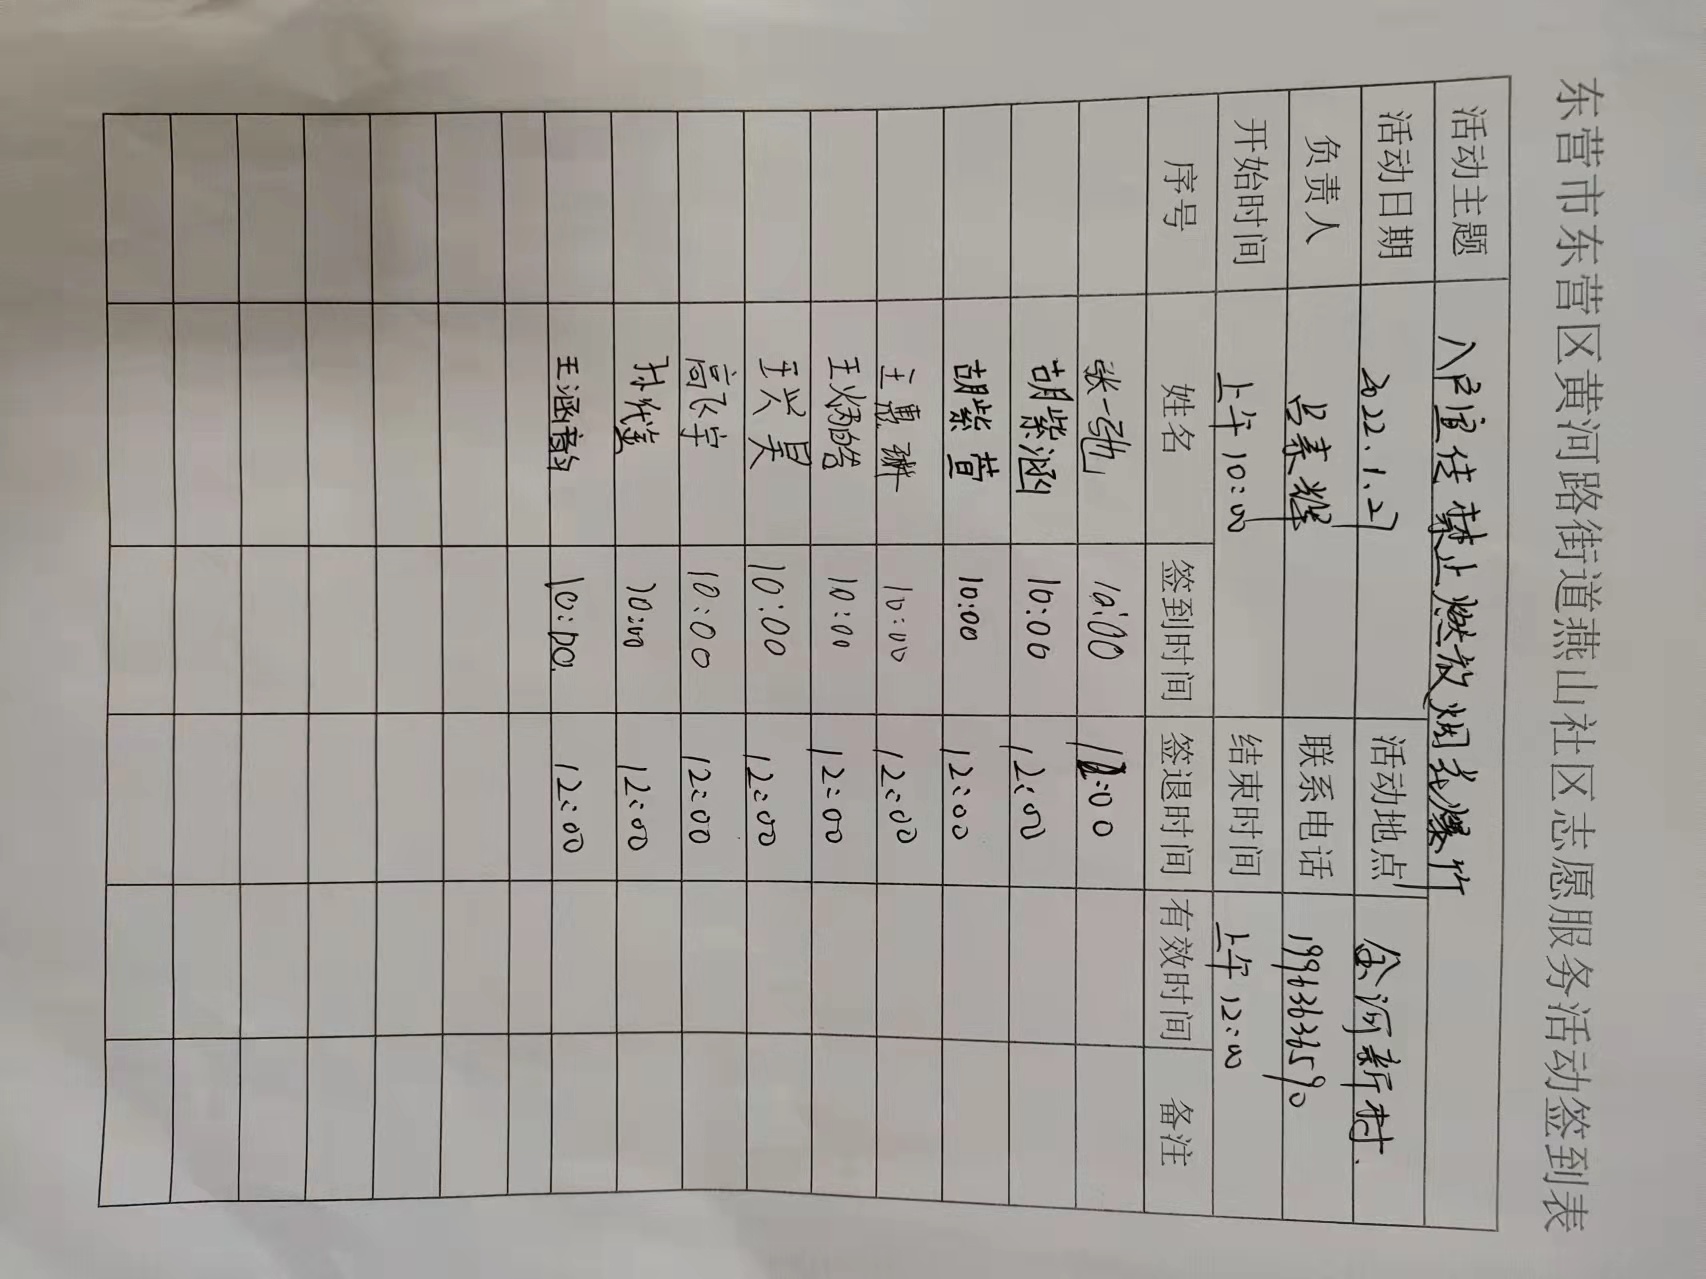 东营市东营区黄河路街道燕山社区志愿服务活动签到表
活动主题 入户宣传禁止燃放烟花爆竹
活动日期 2022.1.27 活动地点 金河新村.
负责人 吕素耀 联系电话 19963636590
开始时间 上午10:00 结束时间 上午12:00
序号 姓名 签到时间 签退时间 有效时间 备注
张一弛 10:00 12:00
胡紫涵 10:00 12:00
胡紫萱 10:00 12:00
王惠琳 10:00 12:00
王炳皓 10:00 12:00
王兴昊 10:00 12:00
高飞宇 10:00 12:00
10:00 12:00
王涵韵 10:00. 12:00